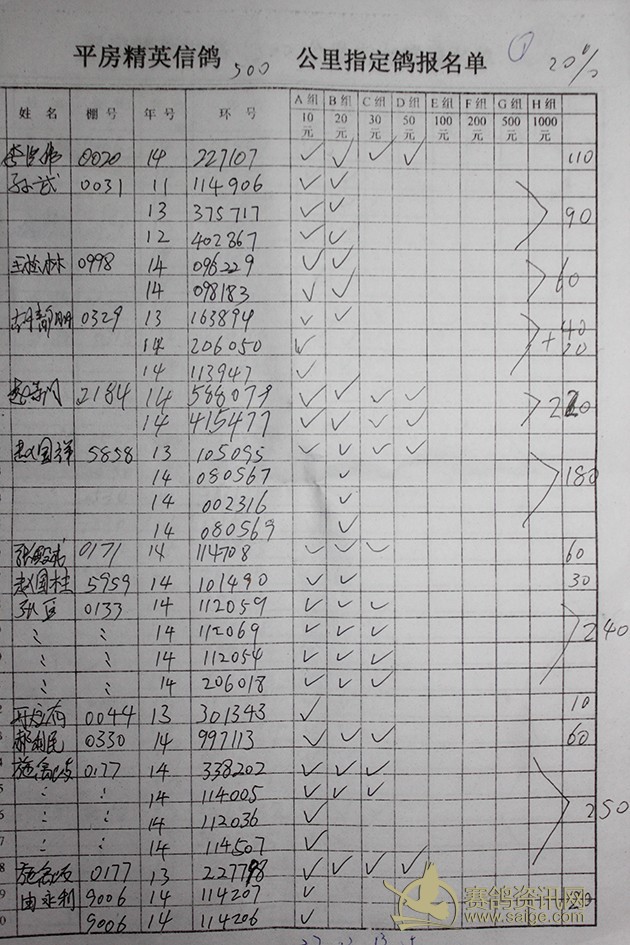 平房精英信鸽 500 公里指定鸽报名单 ① 20%
姓名 棚号 年号 环号 A组10元 B组20元 C组30元 D组50元 E组100元 F组200元 G组500元 H组1000元
0020 14 227107 ✓ ✓ ✓ ✓ 110
孙武 0031 11 114906 ✓ ✓
13 375717 ✓ ✓ 90
12 402867 ✓ ✓
王松林 0998 14 096229 ✓ ✓
14 098183 ✓ ✓ 60
胡静明 0329 13 163894 ✓ ✓ 40
14 206050 ✓ +20
14 113947 ✓
2184 14 588079 ✓ ✓ ✓ ✓
14 415477 ✓ ✓ ✓ ✓ 220
赵国祥 5858 13 105095 ✓ ✓ ✓ ✓
14 080567 ✓ 180
14 002316 ✓
14 080569 ✓
张殿武 0171 14 114708 ✓ ✓ ✓ 60
赵国柱 5959 14 101490 ✓ ✓ 30
0133 14 112059 ✓ ✓ ✓
〃 〃 14 112069 ✓ ✓ ✓ 240
〃 〃 14 112054 ✓ ✓ ✓
〃 〃 14 206018 ✓ ✓ ✓
0044 13 301343 ✓ 10
郝利民 0330 14 997113 ✓ ✓ ✓ 60
0177 14 338202 ✓ ✓ ✓
〃 〃 14 114005 ✓ ✓ ✓
〃 〃 14 112036 ✓ 250
〃 〃 14 114507 ✓
0177 13 227798 ✓ ✓ ✓ ✓
由永利 9006 14 114207 ✓
9006 14 114206 ✓
赛鸽资讯网
www.saige.com